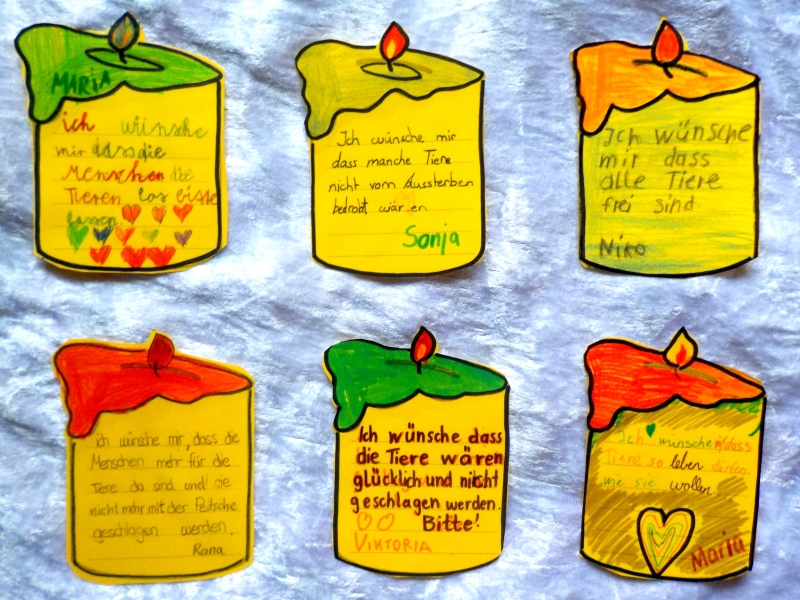 MARIA
ich wünsche
mir dass die
Menschen die
Tieren los
lassen
Ich wünsche mir
dass manche Tiere
nicht vom Aussterben
bedroht wären
Sonja
Ich wünsche
mir dass
alle Tiere
frei sind
Niko
ich wünsche mir, dass die
Menschen mehr für die
Tere da sind und sie
nicht mehr mit der Peitsche
geschlagen werden.
Rana
Ich wünsche dass
die Tiere wären
glücklich und nicht
geschlagen werden.
Bitte!
VIKTORIA
Ich wünsche mir dass
Tiere so leben dürfen
wie sie wollen.
Maria